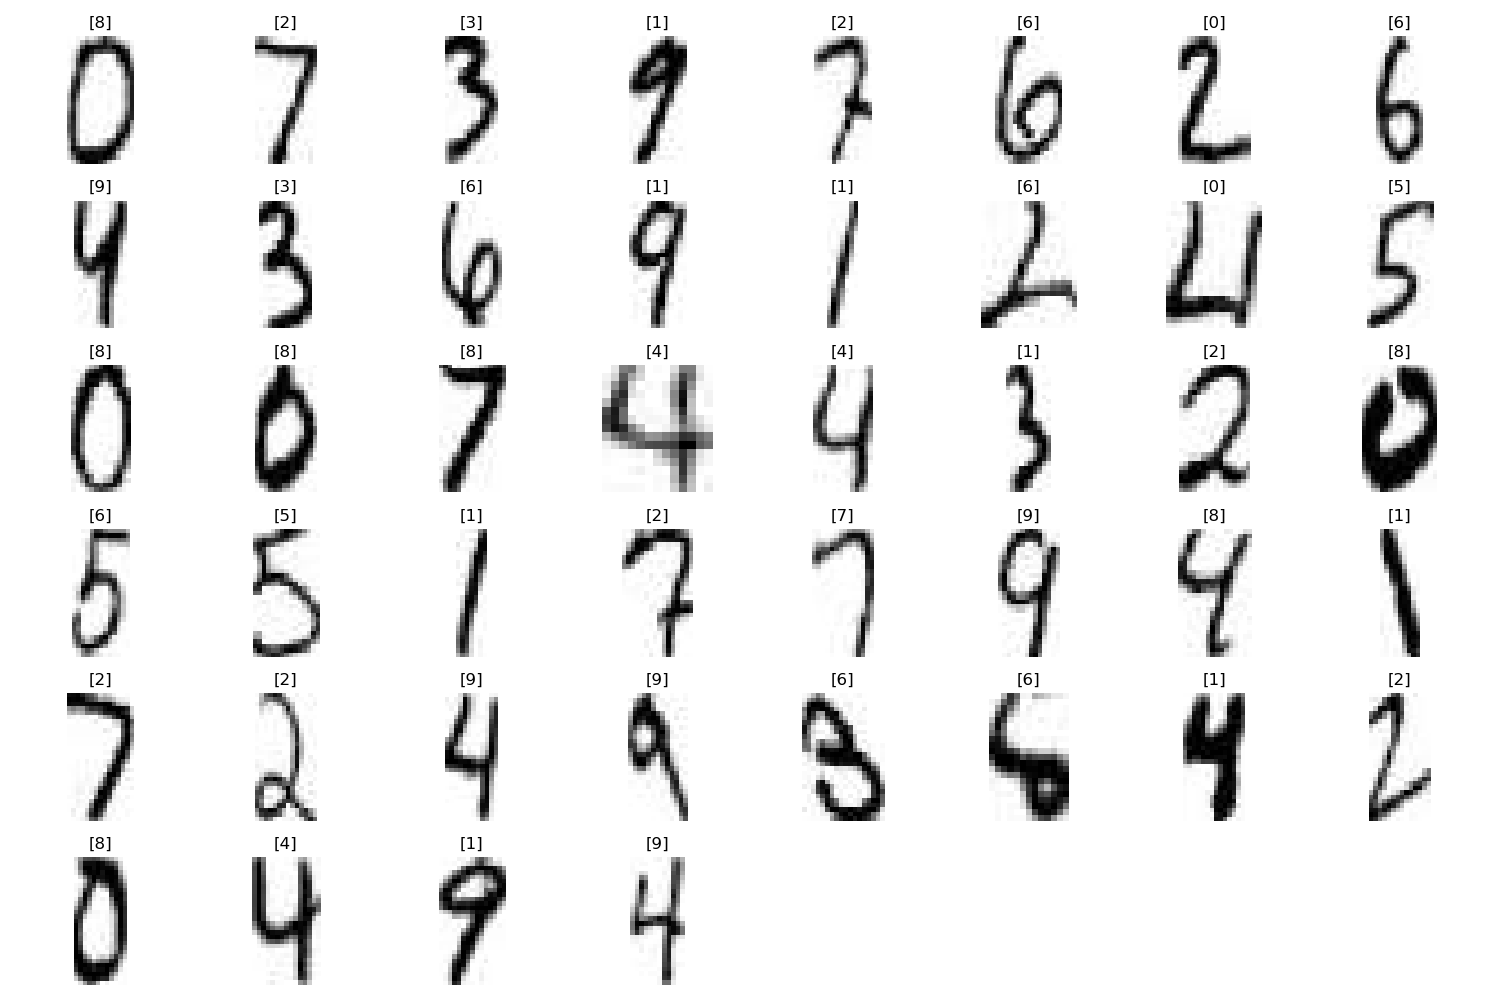 [8] [2] [3] [1] [2] [6] [0] [6]
0 7 3 9 7 6 2 6
[9] [3] [6] [1] [1] [6] [0] [5]
4 3 6 9 1 2 4 5
[8] [8] [8] [4] [4] [1] [2] [8]
0 0 7 4 4 3 2 0
[6] [5] [1] [2] [7] [9] [8] [1]
5 5 1 7 7 9 4 1
[2] [2] [9] [9] [6] [6] [1] [2]
7 2 4 9 3 4 2
[8] [4] [1] [9]
0 4 9 4